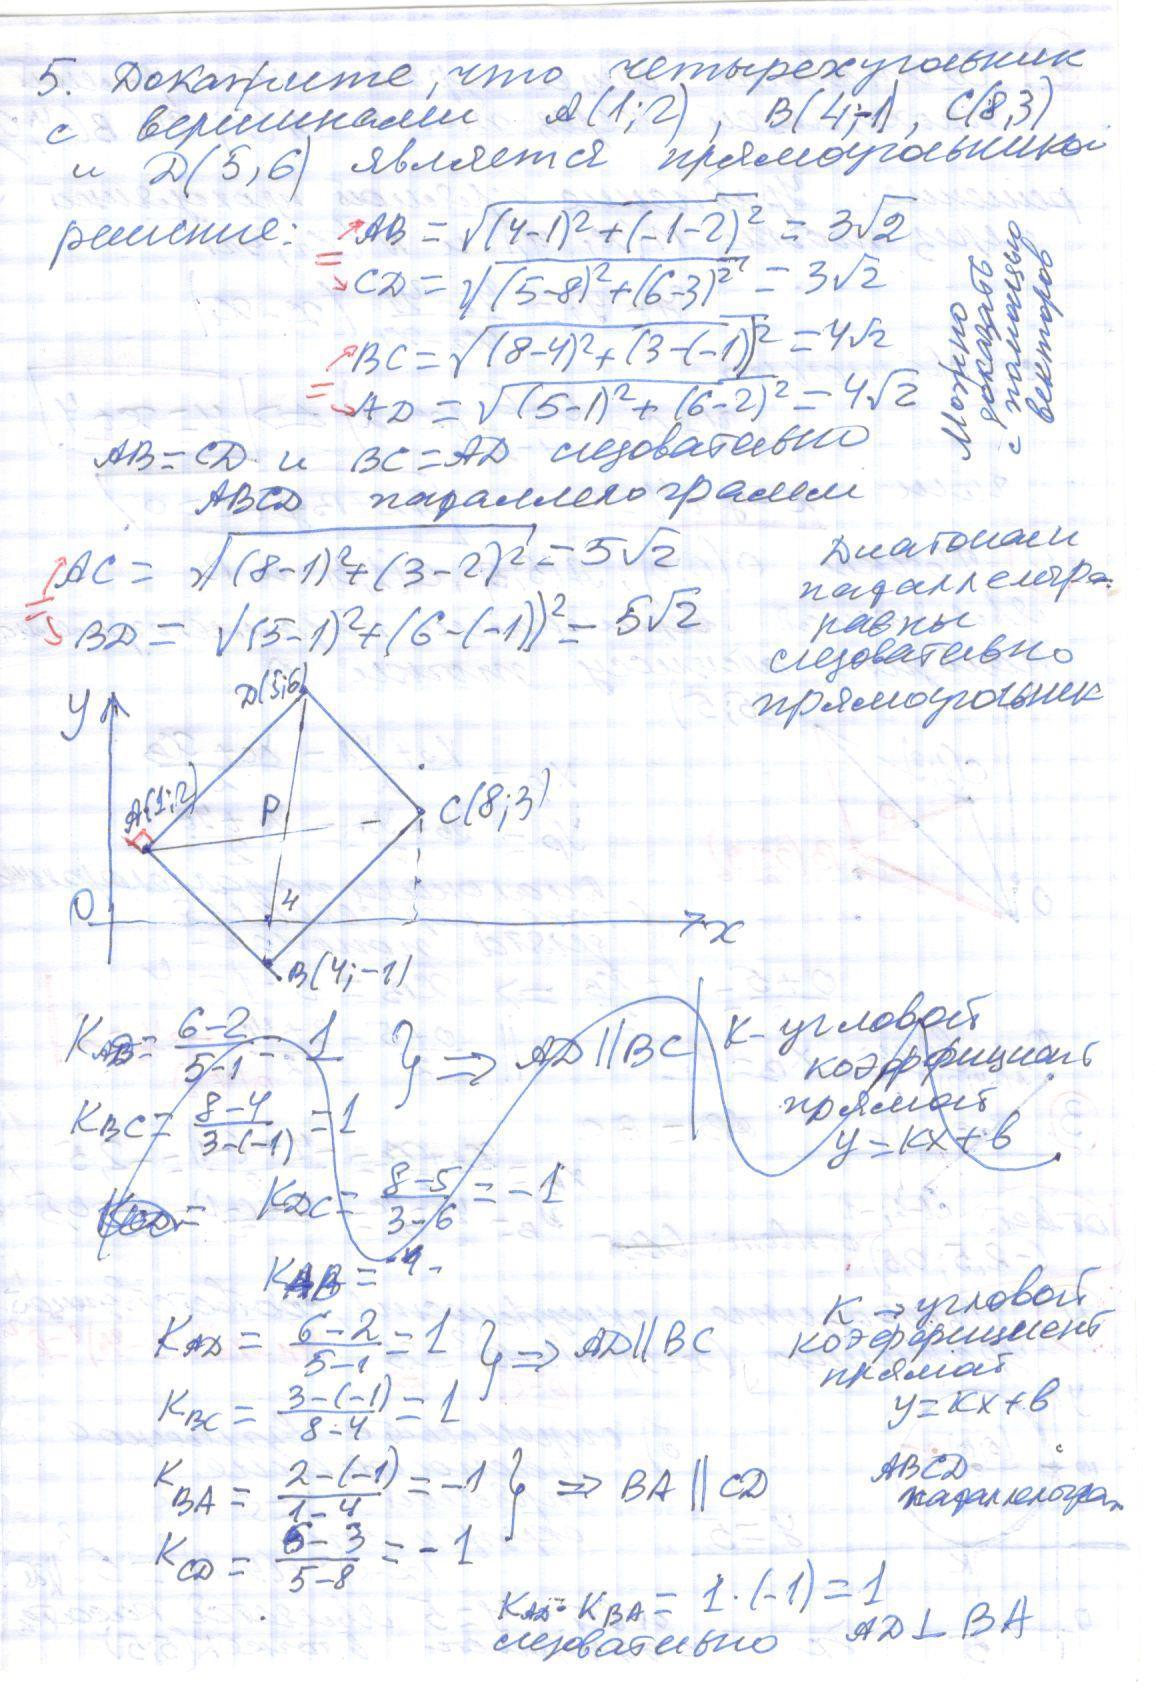 5. Докажите, что четырехугольник
с вершинами A(1;2), B(4;-1), C(8,3)
и D(5,6) является прямоугольником
решение: AB = √(4-1)² + (-1-2)² = 3√2
= CD = √(5-8)² + (6-3)² = 3√2
BC = √(8-4)² + (3-(-1))² = 4√2
= AD = √(5-1)² + (6-2)² = 4√2
Можно
доказать
с помощью
векторов
AB = CD и BC = AD следовательно
ABCD параллелограмм
AC = √(8-1)² + (3-2)² = 5√2
= BD = √(5-1)² + (6-(-1))² = 5√2
Диагонали
параллелогра-
равны
следовательно
прямоугольник
y
D(5;6)
A(1;2)
P
C(8;3)
0
4
x
B(4;-1)
K = 6-2 / 5-1 = 1 } ⇒ AD || BC
K BC = 8-4 / 3-(-1) = 1
K - угловой
коэффициент
прямой
y = kx + b
K DC = 8-5 / 3-6 = -1
K AB =
K AD = 6-2 / 5-1 = 1 } ⇒ AD || BC
K BC = 3-(-1) / 8-4 = 1
K → угловой
коэффициент
прямой
y = kx + b
K BA = 2-(-1) / 1-4 = -1 } ⇒ BA || CD
K CD = 6-3 / 5-8 = -1
ABCD
параллелогра
K AD · K BA = 1 · (-1) = 1
следовательно AD ⊥ BA